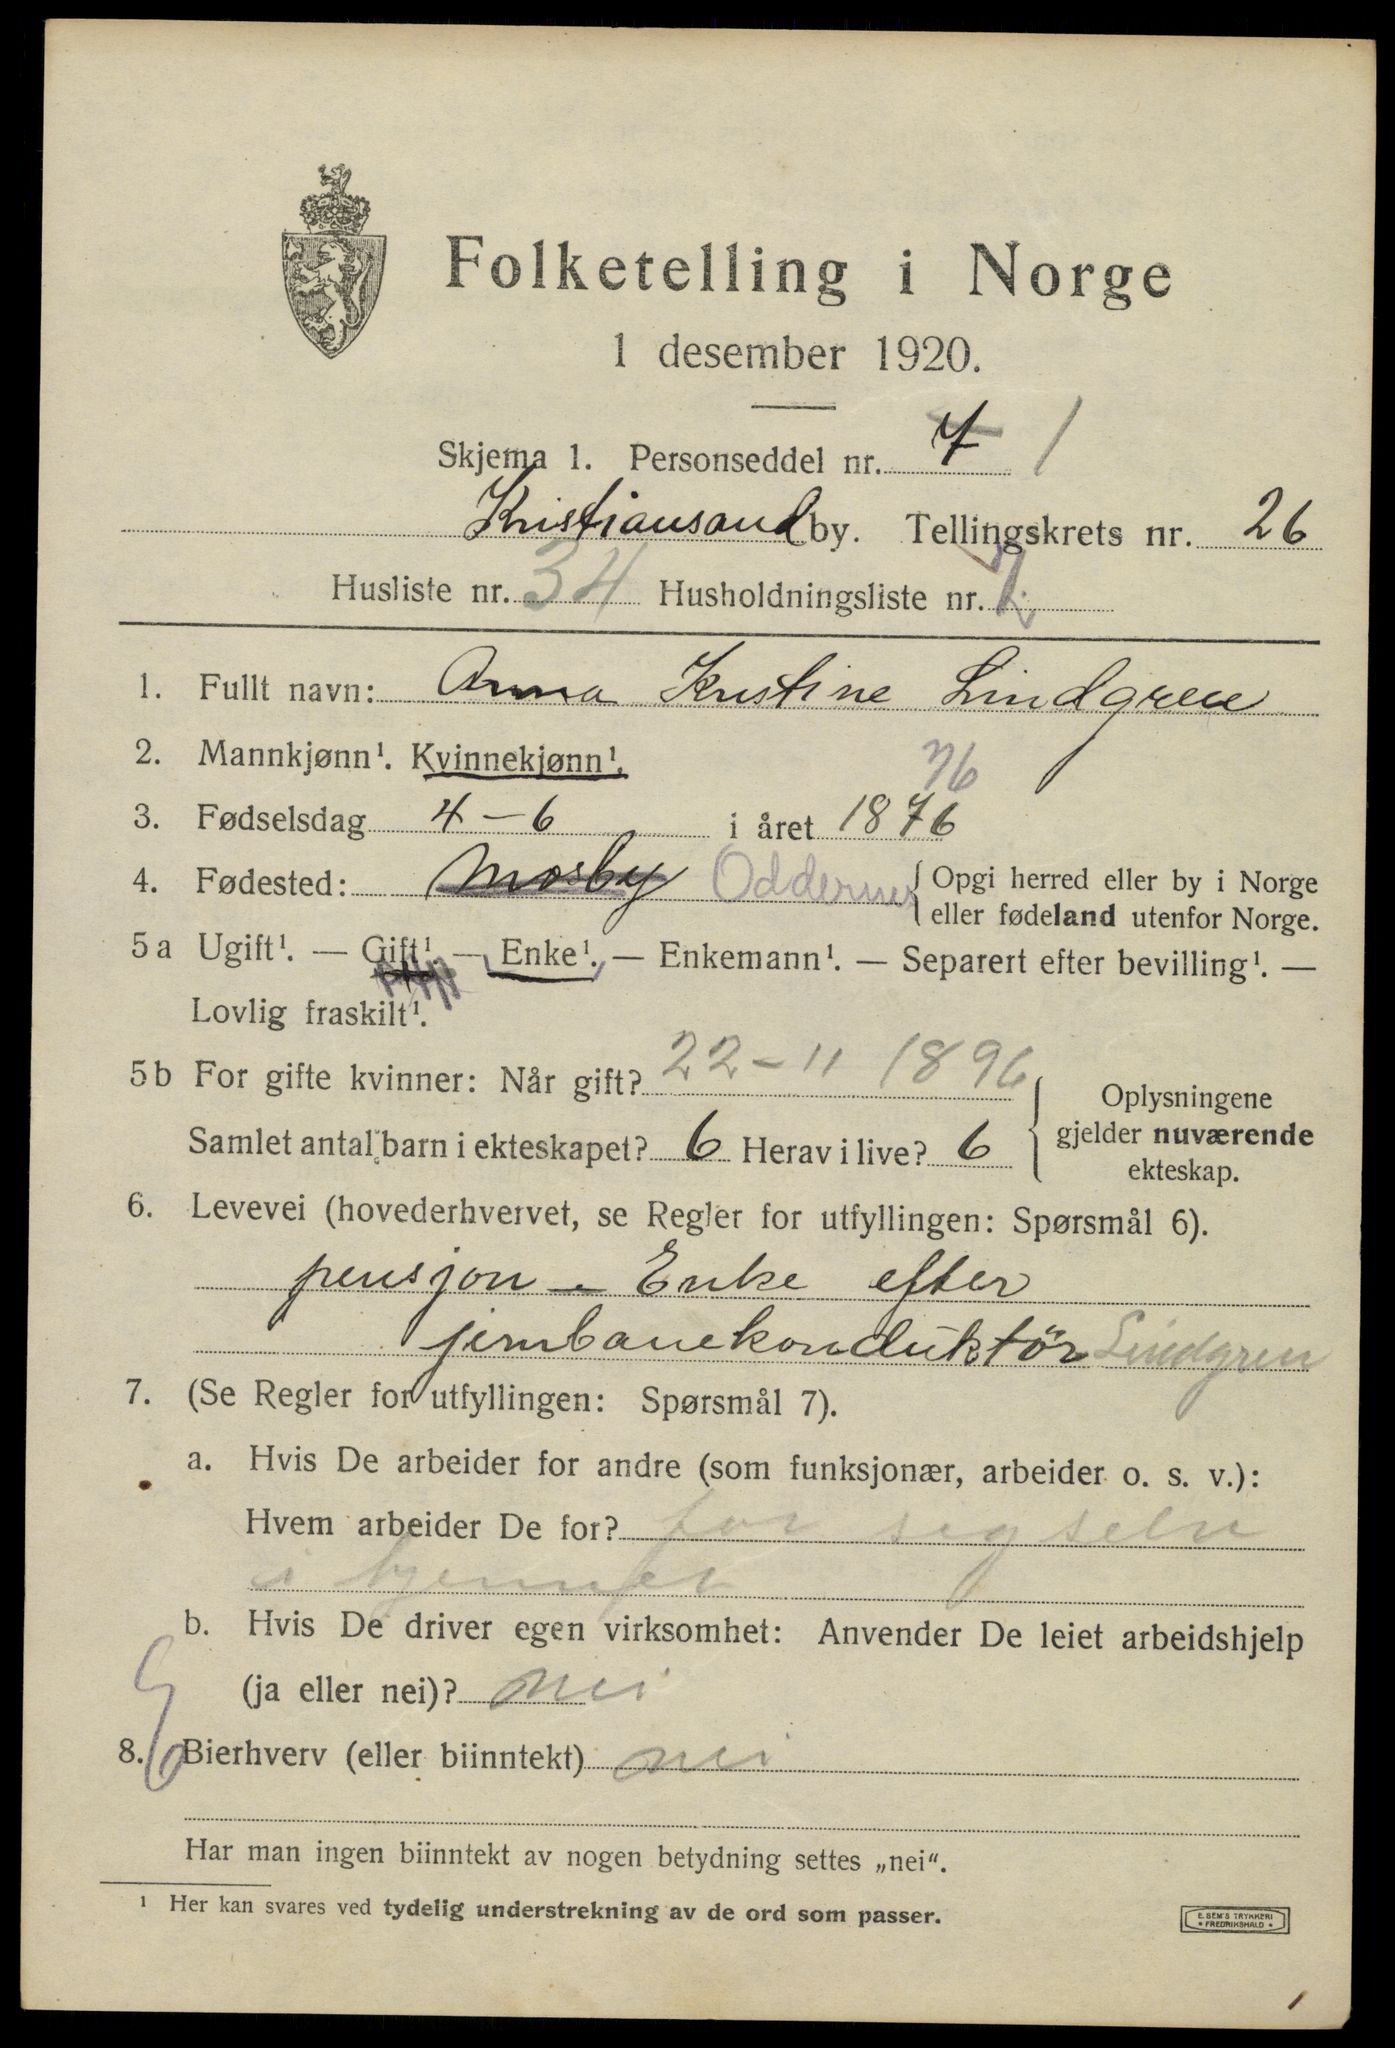 Folketelling i Norge
1 desember 1920.
Skjema 1. Personseddel nr. 7 1
Kristiansand by. Tellingskrets nr. 26
Husliste nr. 34 Husholdningsliste nr.
1. Fullt navn: Anna Kristine Lindgren
2. Mannkjønn¹. Kvinnekjønn¹.
76
3. Fødselsdag 4-6 i året 1876
4. Fødested: Mosby Oddernes { Opgi herred eller by i Norge
eller fødeland utenfor Norge.
5 a Ugift¹. — Gift¹ — Enke¹. — Enkemann¹. — Separert efter bevilling¹. —
Lovlig fraskilt¹.
5 b For gifte kvinner: Når gift? 22-11 1896
Samlet antal barn i ekteskapet? 6 Herav i live? 6
Oplysningene
gjelder nuværende
ekteskap.
6. Levevei (hovederhvervet, se Regler for utfyllingen: Spørsmål 6).
pensjon - Enke efter
jernbanekonduktör Lindgren
7. (Se Regler for utfyllingen: Spørsmål 7).
a. Hvis De arbeider for andre (som funksjonær, arbeider o. s. v.):
Hvem arbeider De for? for seg selv
i hjemmet
b. Hvis De driver egen virksomhet: Anvender De leiet arbeidshjelp
(ja eller nei)? nei
8. Bierhverv (eller biinntekt) nei
Har man ingen biinntekt av nogen betydning settes „nei".
¹ Her kan svares ved tydelig understrekning av de ord som passer.
E. SEM'S TRYKKERI
* FREDRIKSHALD *